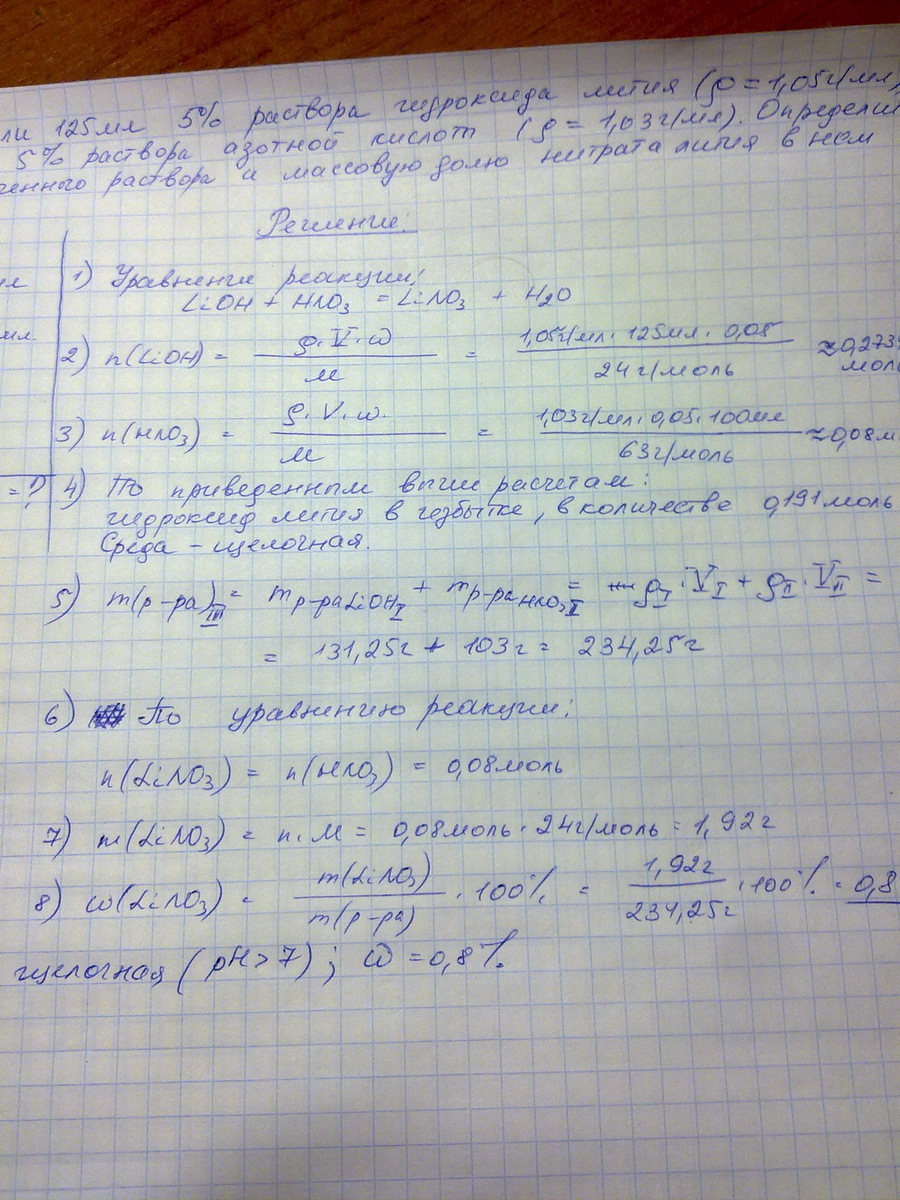 ли 125мл 5% раствора гидроксида лития (ρ = 1,05г/мл)
5% раствора азотной кислот (ρ = 1,03г/мл). Определи
ченного раствора и массовую долю нитрата лития в нем
Решение:
1) Уравнение реакции:
LiOH + HNO₃ = LiNO₃ + H₂O
мл.
2) n(LiOH) = ρ·V·ω / M = 1,05г/мл · 125мл · 0,05 / 24 г/моль ≈ 0,273 моль
3) n(HNO₃) = ρ·V·ω. / M = 1,03г/мл · 0,05 · 100мл / 63г/моль ≈ 0,08 м
= ? 4) По приведенным выше расчетам:
гидроксид лития в избытке, в количестве 0,191 моль
Среда - щелочная.
5) m(р-ра)III = mр-ра LiOH I + mр-ра HNO₃ II = ρI · VI + ρII · VII =
= 131,25г + 103г = 234,25г
6) По уравнению реакции:
n(LiNO₃) = n(HNO₃) = 0,08моль
7) m(LiNO₃) = n · M = 0,08моль · 24г/моль = 1,92г
8) ω(LiNO₃) = m(LiNO₃) / m(р-ра) · 100% = 1,92г / 234,25г · 100% = 0,8
щелочная (pH > 7); ω = 0,8%.